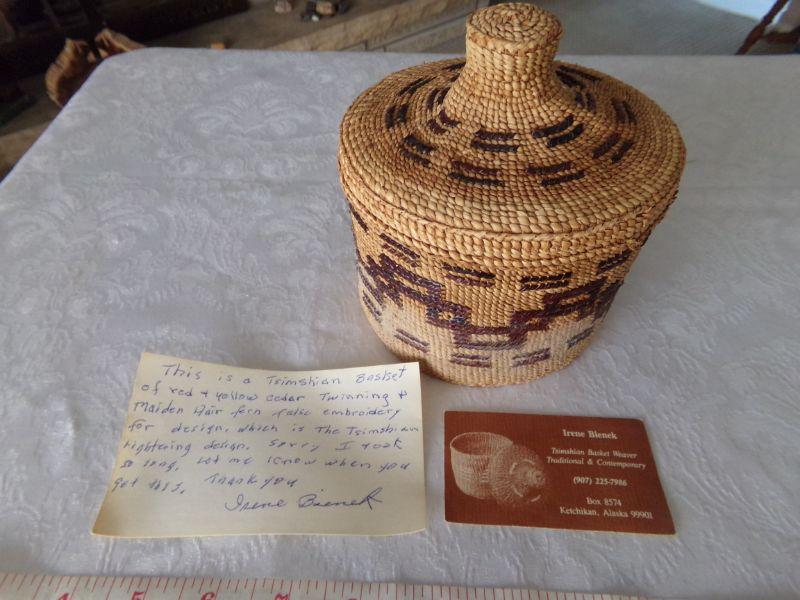 This is a Tsimshian Basket
of red & yellow cedar Twinning &
Maiden Hair fern false embroidery
for design, which is The Tsimshian
Lightening design. Sorry I took
so long, Let me know when you
get this, Thank you
Irene Bienek
Irene Bienek
Tsimshian Basket Weaver
Traditional & Contemporary
(907) 225-7986
Box 8574
Ketchikan, Alaska 99901
4 5 6 7 8